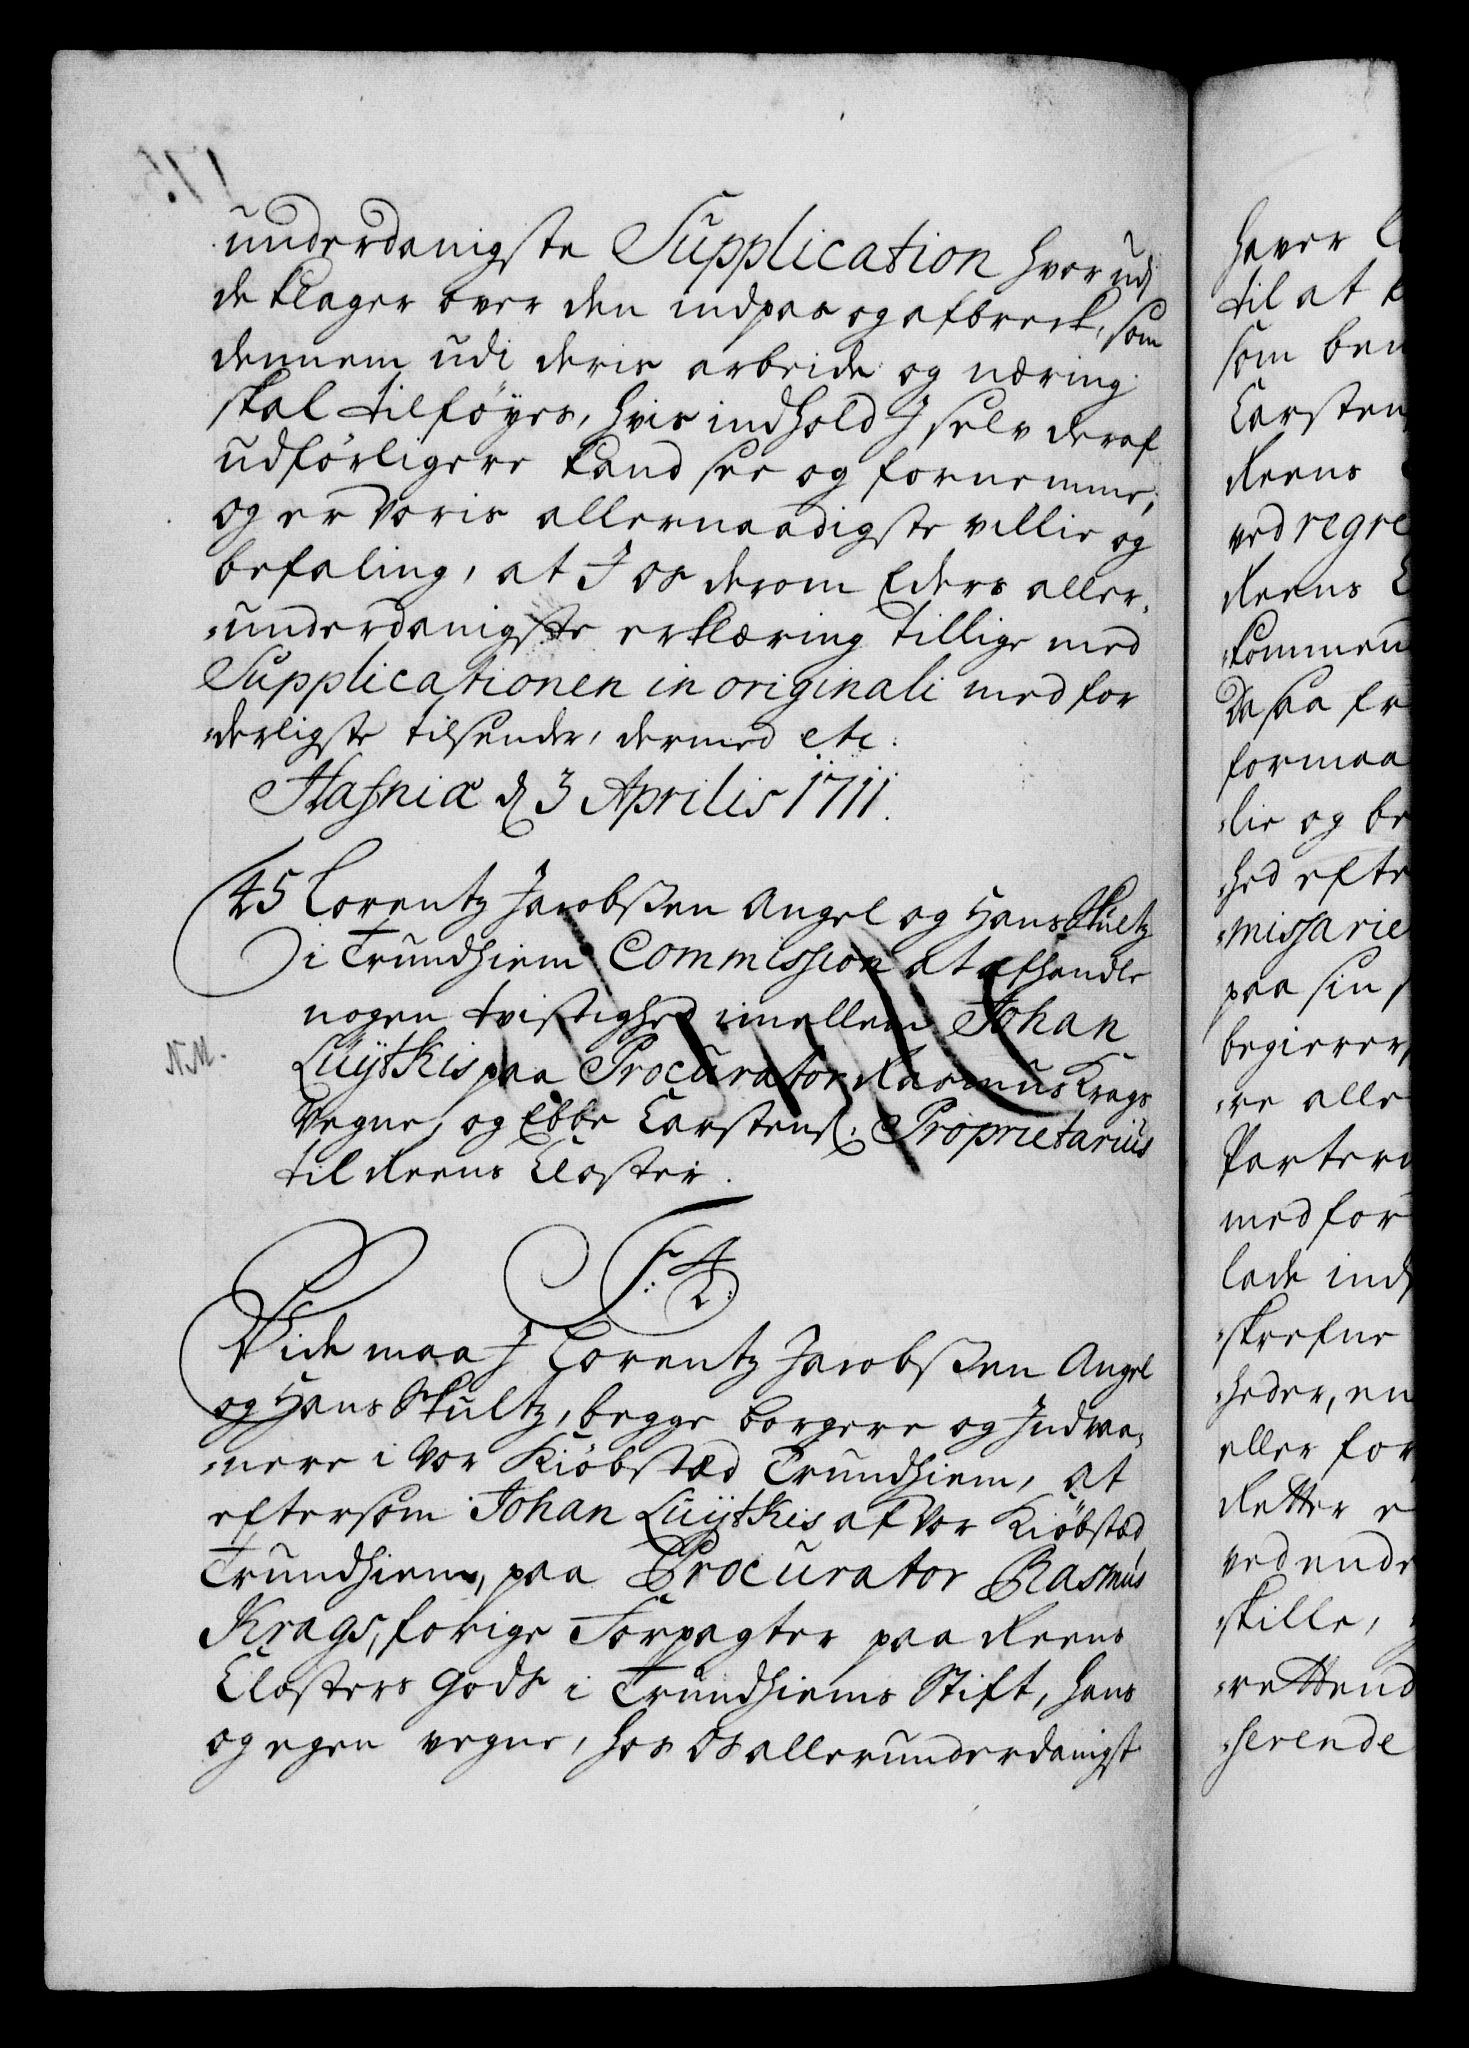 underdanigste Supplication hvorudj
de klager over den indpas og afbreck, som
dennem udi deris arbeide og næring
skal tilføyes, hvis indhold J selv deraf
udførligere kand see og fornemme,
og er Voris allernaadigste villie og
befaling, at J os derom Eders aller-
underdanigste erklæring tillige med
Supplicationen in originali med for
derligste tilsender, dermed etc:
Hafniæ d 3 Aprilis 1711.
45 Lorentz Jacobßen Angel og Hans Skultz
i Trundhiem Commission at afhandle
nogen tvistighed imellem Johan
Lüytkis paa Procurator Rasmus Krags
Vegne, og Ebbe Carstens: Proprietarius
til Reens Closter.
N.M.
F: 4
Vide maa J Lorentz Jacobßen Angel
og Hans Skultz, begge borgere og Indvaa-
nere i Vor Kiöbstæd Trundhiem, at
eftersom Johan Lüytkis af Vor Kiöbstæd
Trundhiem, paa Procurator Rasmus
Krags, forige Forpagter paa Reens
Closters Gods i Trundhiems Stift, hans
og egen vegne, hos Os allerunderdanigst
haver
til at
som ben
Carsten
Reens
ved regre
Reens
kommen
Da saa fr
formaa
lie og be
hed efte
missarie
paa sin
begierer
re alle
Parter
med for
lade ind
skrefne
heder, en
eller for
Retter e
ved ende
skille,
rettend
serende